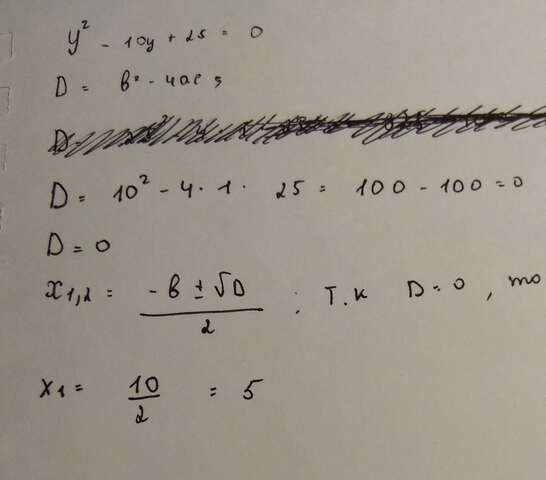 y² - 10y + 25 = 0
D = b² - 4ac;
D = 10² - 4 · 1 · 25 = 100 - 100 = 0
D = 0
x₁,₂ = (-b ± √D) / 2 ; т.к D = 0, то
x₁ = 10 / 2 = 5